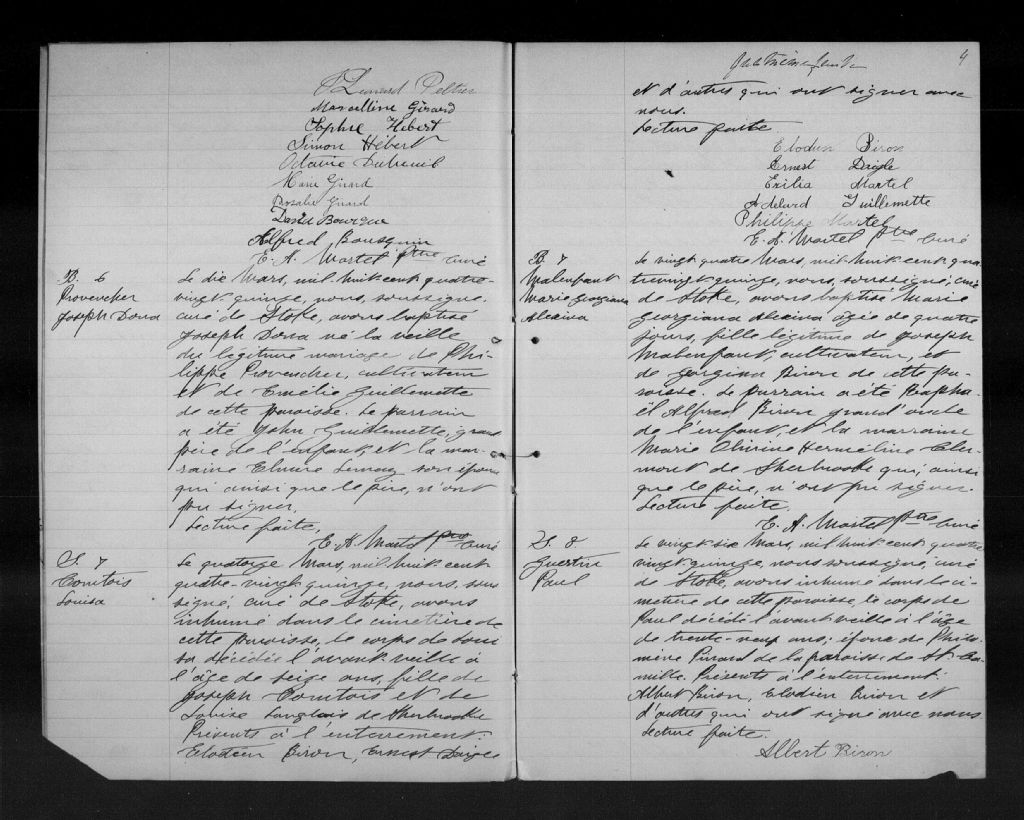 Leonard Peltier
Marcelline Girard
Sophie Hebert
Simon Hébert
Octavie Dubreuil
Marie Girard
Rosalie Girard
David Bourque
Alfred Bousquin
E. A. Martel ptre curé
B. 6
Provencher
Joseph Dona
Le dix Mars, mil huit cent quatre-
vingt quinze, nous, soussigné,
curé de Stoke, avons baptisé
Joseph Dona né la veille
du légitime mariage de Phi-
lippe Provencher, cultivateur
et de Emélie Guillemette
de cette paroisse. Le parrain
a été John Guillemette, grand
père de l'enfant, et la mar-
raine Elmire Lemay son épouse
qui ainsi que le père, n'ont
pu signer.
Lecture faite.
E. A. Martel ptre curé
S. 7
Comtois
Louisa
Le quatorze Mars, mil huit cent
quatre-vingt quinze, nous, sous
signé, curé de Stoke, avons
inhumé dans le cimetière de
cette paroisse, le corps de Loui
sa décédée l'avant-veille à
l'âge de seize ans, fille de
Joseph Comtois et de
Louise Langlois de Sherbrooke
Présents à l'enterrement:
Elodien Biron, Ernest Daigle
4
et d'autres qui ont signer avec
nous.
Lecture faite
Elodien Biron
Ernest Daigle
Exilia Martel
Adelard Guillemette
Philippe Martel
E. A. Martel ptre curé
B 7
Malenfant
Marie Georgiana
Alexina
Le vingt quatre Mars, mil-huit-cent qua
trevingt quinze, nous, soussigné, curé
de Stoke, avons baptisé Marie
Georgiana Alexina âgée de quatre
jours, fille légitime de Joseph
Malenfant cultivateur, et
de Georgina Biron de cette pa-
roisse. Le parrain a été Rapha-
ël Alfred Biron grand'oncle
de l'enfant, et la marraine
Marie Olivine Herméline Cler-
mont de Sherbrooke qui, ainsi
que le père, n'ont pu signer.
Lecture faite.
E. A. Martel ptre curé
S. 8.
Guertin
Paul
Le vingt six Mars, mil huit cent quatre
vingt quinze, nous soussigné, curé
de Stoke, avons inhumé dans le ci-
metière de cette paroisse, le corps de
Paul décédé l'avant veille à l'âge
de trente-neuf ans; époux de Philo-
mène Pinard de la paroisse de St. Ca-
mille. Présents à l'enterrement:
Albert Biron, Elodien Biron et
d'autres qui ont signé avec nous
Lecture faite.
Albert Biron